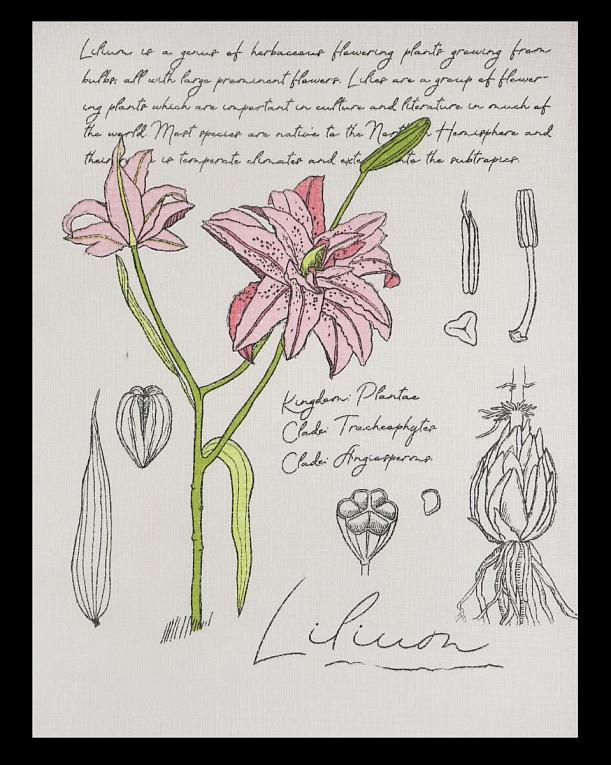 Lilium is a genus of herbaceous flowering plants growing from
bulbs, all with large prominent flowers. Lilies are a group of flower-
ing plants which are important in culture and literature in much of
the world. Most species are native to the Hemisphere and
is temperate climates and the subtropics.
Kingdom: Plantae
Clade: Tracheophytes
Clade: Angiosperms
Lilium